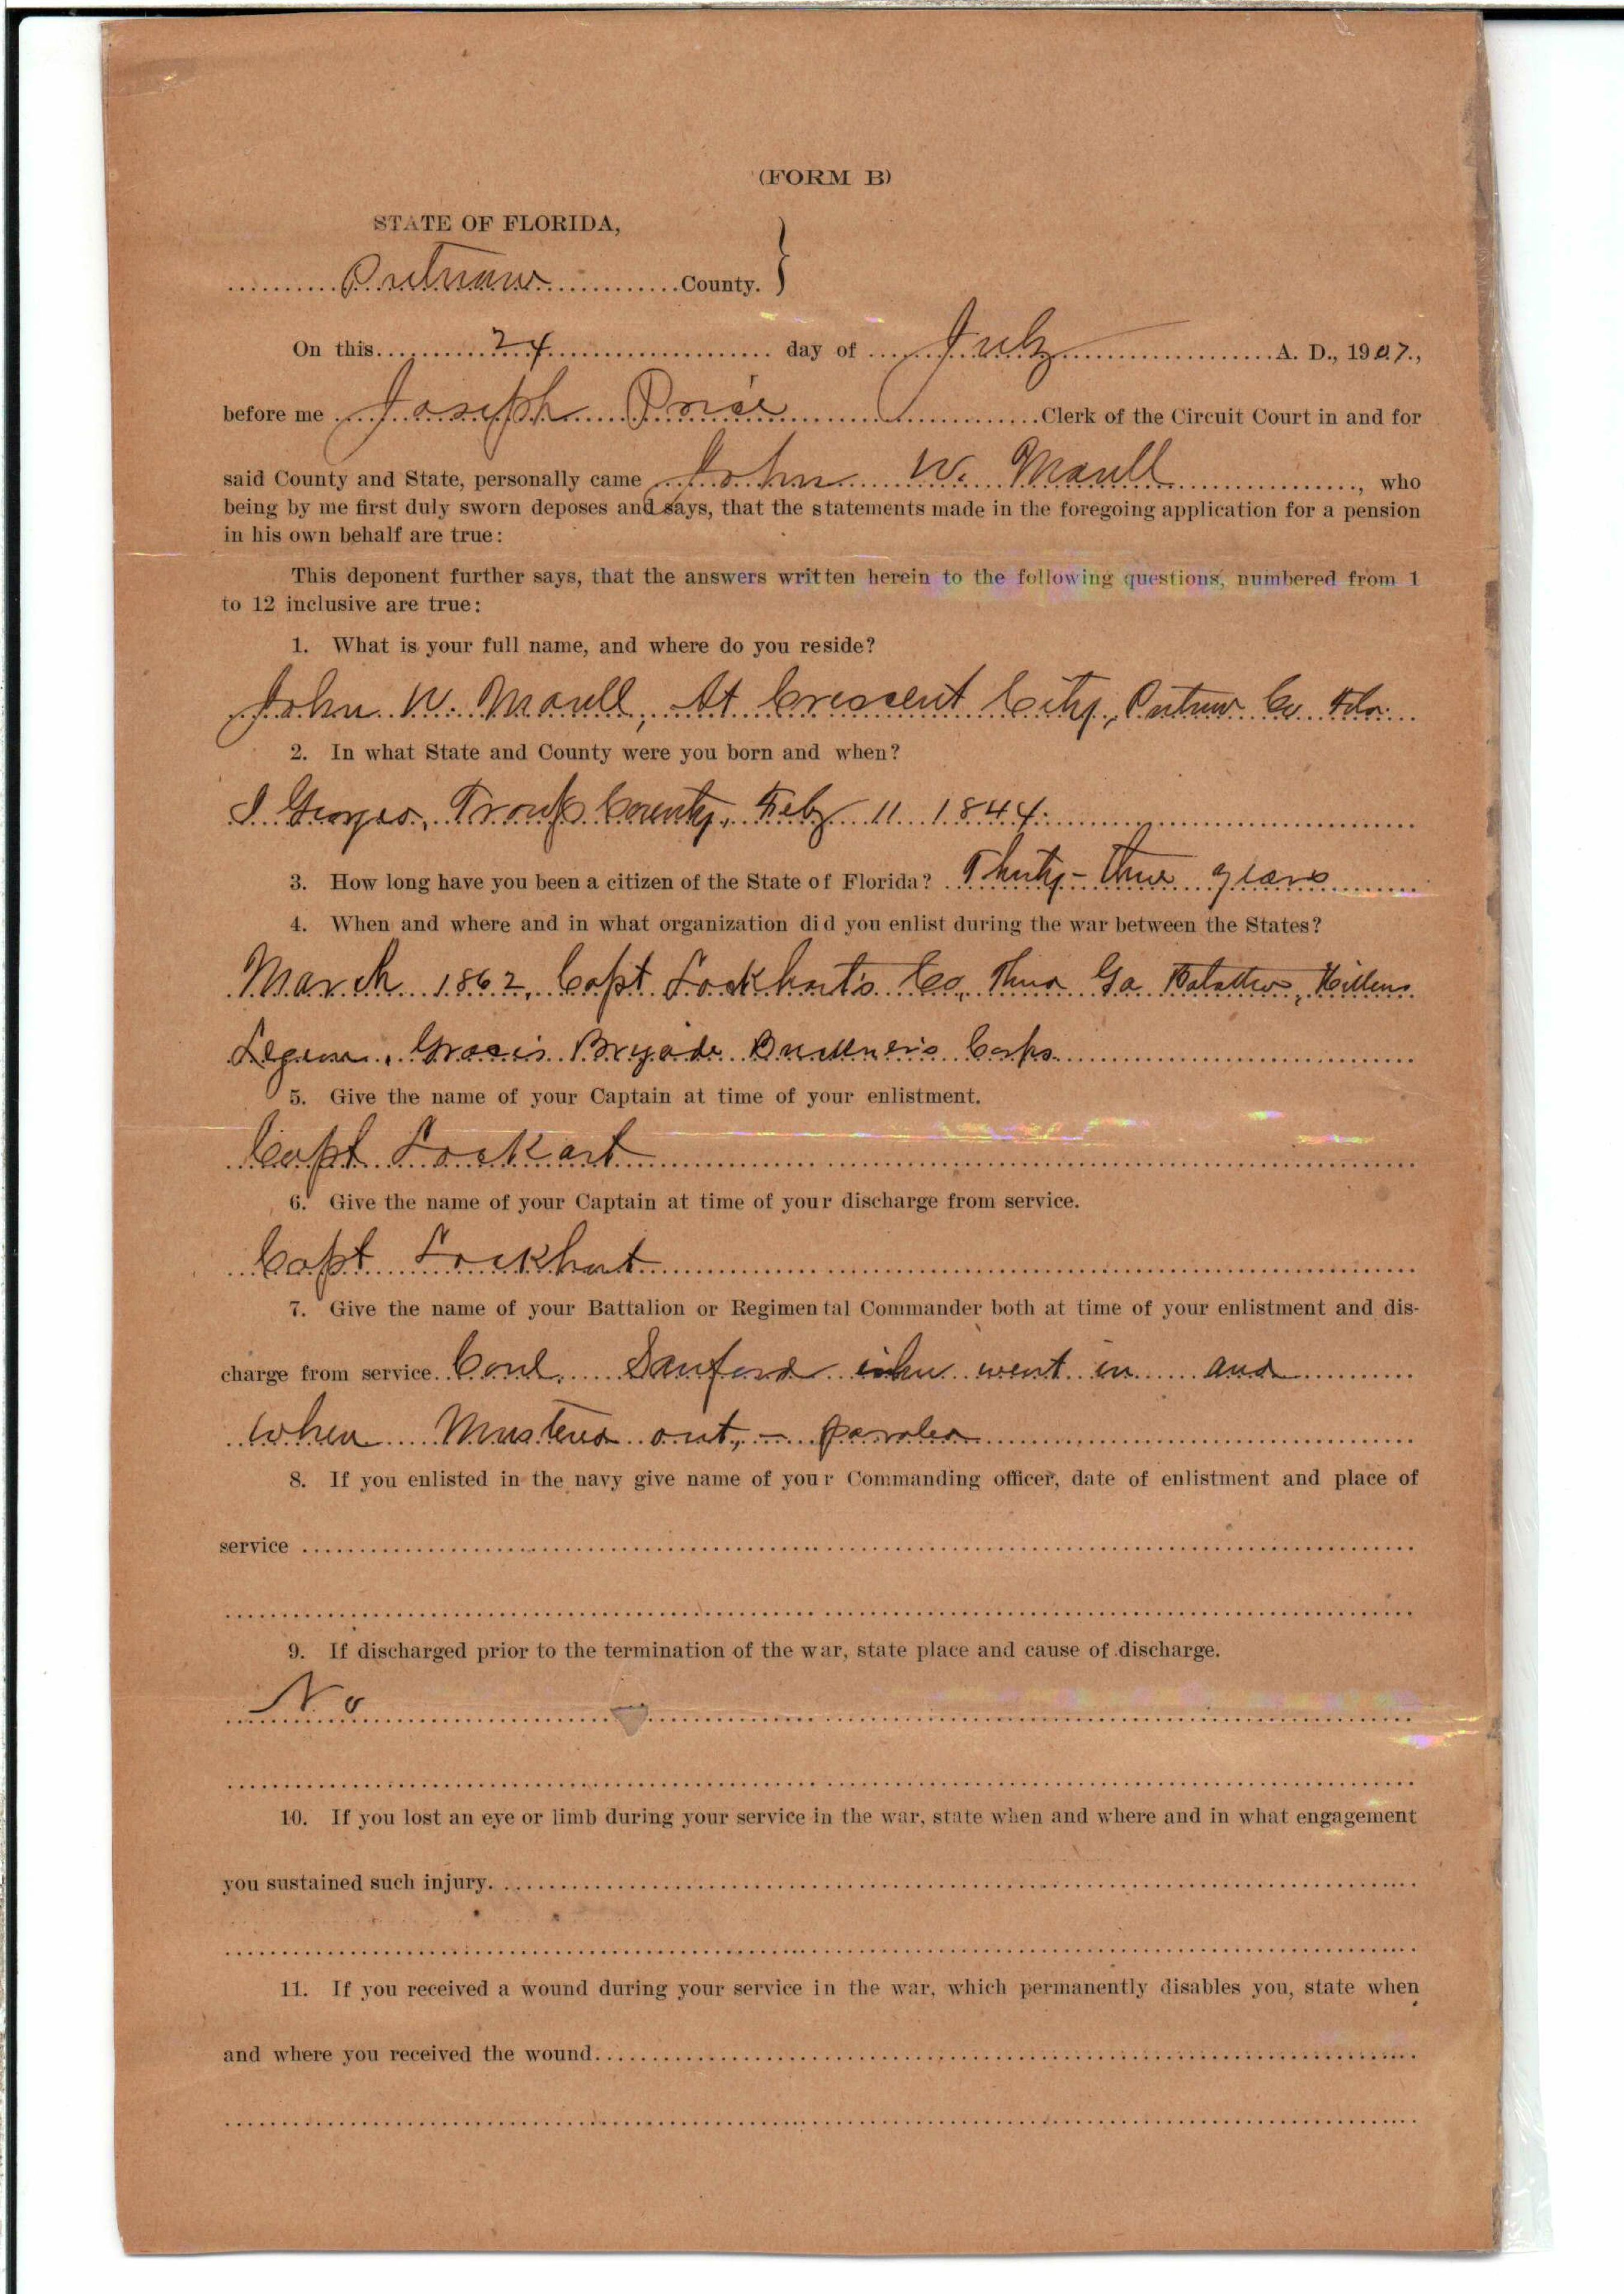 (FORM B)
STATE OF FLORIDA,
Putnam County.
On this 24 day of July A. D., 1907.,
before me Joseph Price Clerk of the Circuit Court in and for
said County and State, personally came John W. Maull, who
being by me first duly sworn deposes and says, that the statements made in the foregoing application for a pension
in his own behalf are true:
This deponent further says, that the answers written herein to the following questions, numbered from 1
to 12 inclusive are true:
1. What is your full name, and where do you reside?
John W. Maull, At Crescent City, Putnam Co. Fla.
2. In what State and County were you born and when?
Troup County, Feby 11 1844.
3. How long have you been a citizen of the State of Florida? Thirty-three years
4. When and where and in what organization did you enlist during the war between the States?
March 1862, Capt Lockhart's Co, Third Ga Batallion, Hilliard
Legion, Gracie's Brigade Buckner's Corps
5. Give the name of your Captain at time of your enlistment.
Capt Lockart
6. Give the name of your Captain at time of your discharge from service.
Capt Lockhart
7. Give the name of your Battalion or Regimental Commander both at time of your enlistment and dis-
charge from service. Sanford when went in and
when Mustered out, - paroled
8. If you enlisted in the navy give name of your Commanding officer, date of enlistment and place of
service
9. If discharged prior to the termination of the war, state place and cause of discharge.
No
10. If you lost an eye or limb during your service in the war, state when and where and in what engagement
you sustained such injury.
11. If you received a wound during your service in the war, which permanently disables you, state when
and where you received the wound.